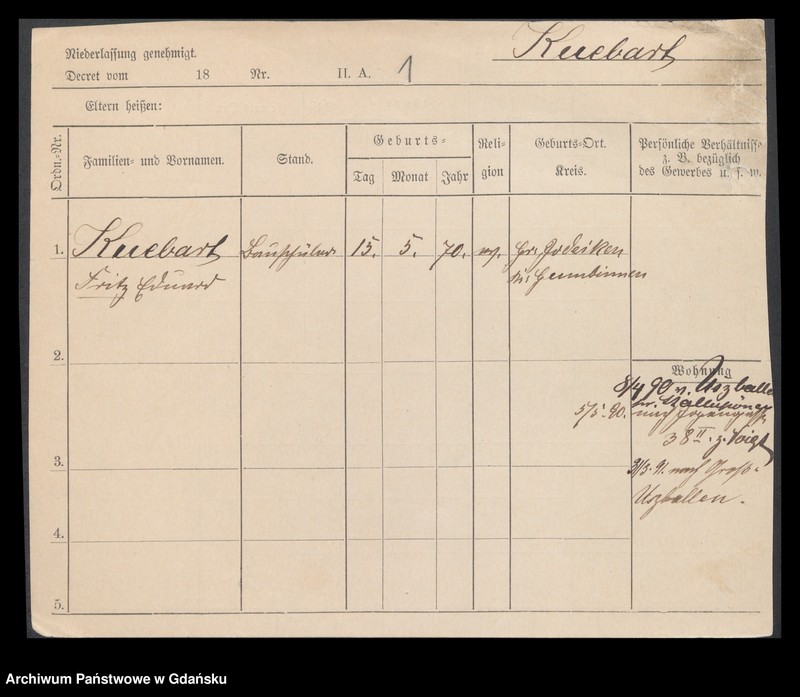 Kuebart
Niederlassung genehmigt.
Decret vom 18 Nr. II. A. 1
Eltern heißen:
Ordn.-Nr.
Familien- und Vornamen.
Stand.
Geburts-
Tag Monat Jahr
Religion
Geburts-Ort.
Kreis.
Persönliche Verhältnisse
z. B. bezüglich
des Gewerbes u. s. w.
1. Kuebart Bauschüler 15. 5. 70. ev.
Fritz Eduard Kr. Gumbinnen
2.
Wohnung
8/4 90 v. Uszballen
Kr. Stallupönen
5/5. 90. nach
38 II. z. Voigt
3. 31/3. 91. nach Groß-
Uszballen.
4.
5.
Archiwum Państwowe w Gdańsku